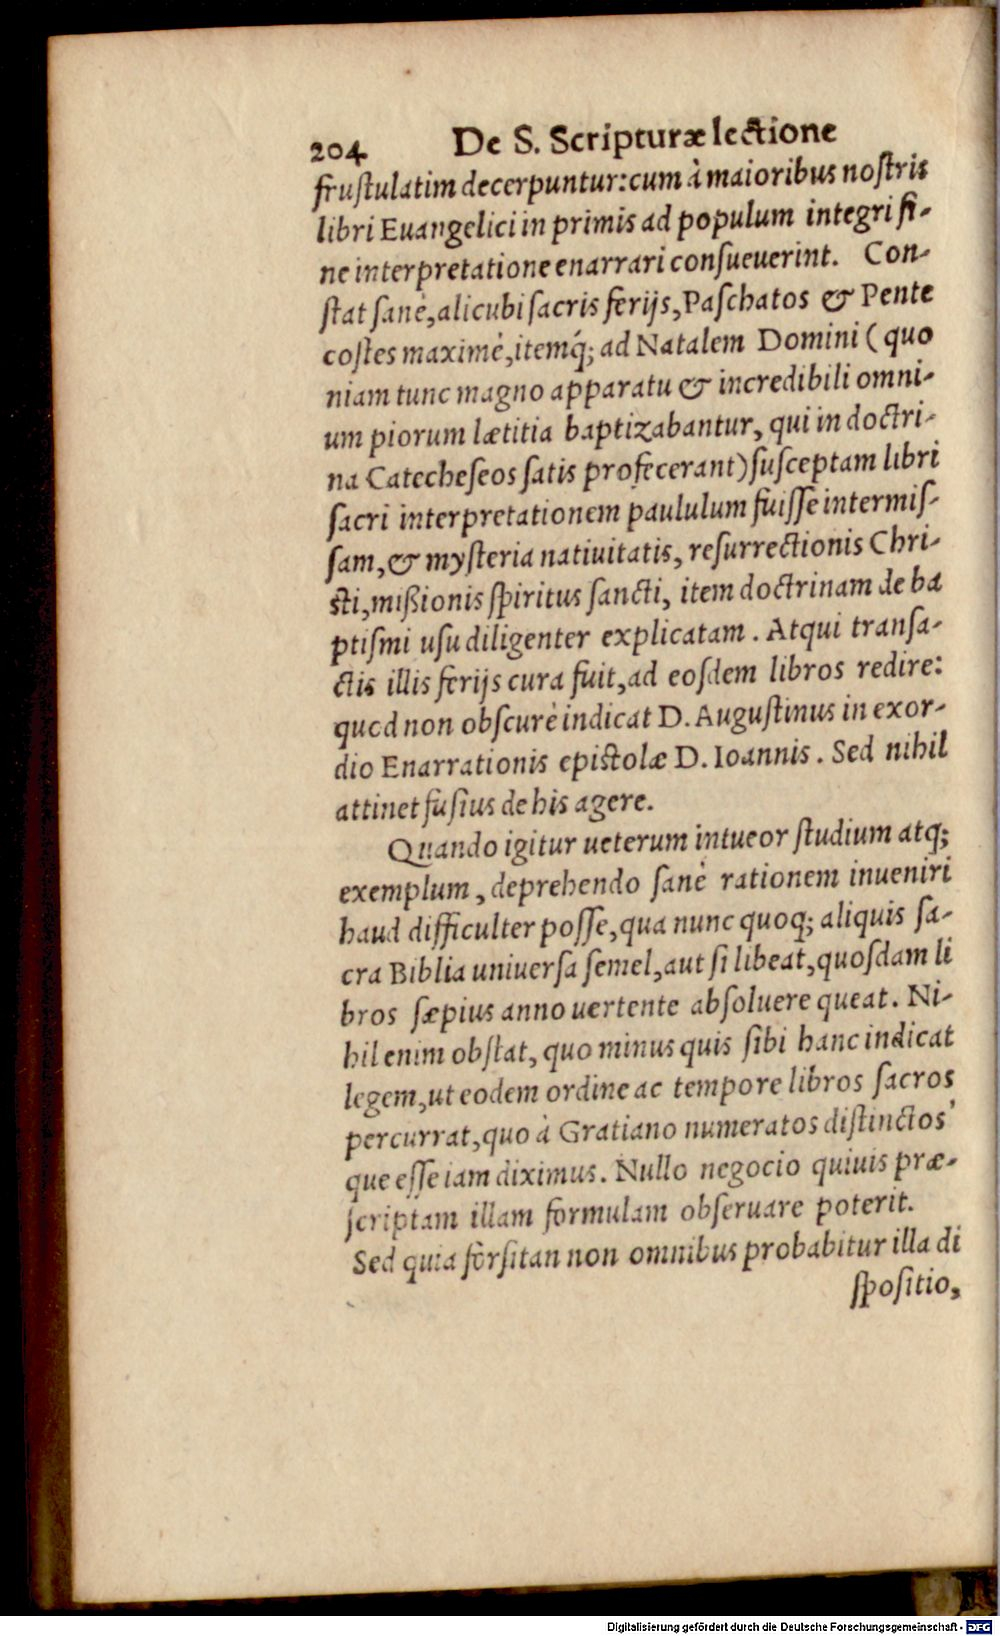 204 De S. Scripturæ lectione
fruſtulatim decerpuntur: cum à maioribus noſtris
libri Euangelici in primis ad populum integri ſi-
ne interpretatione enarrari conſueuerint. Con-
ſtat ſanè, alicubi ſacris ferijs, Paſchatos & Pente
coſtes maximè, itemq́; ad Natalem Domini (quo
niam tunc magno apparatu & incredibili omni-
um piorum lætitia baptizabantur, qui in doctri-
na Catecheſeos ſatis profecerant) ſuſceptam libri
ſacri interpretationem paululum fuiſſe intermiſ-
ſam, & myſteria natiuitatis, reſurrectionis Chri-
ſti, mißionis ſpiritus ſancti, item doctrinam de ba
ptiſmi uſu diligenter explicatam. Atqui tranſa-
ctis illis ferijs cura fuit, ad eoſdem libros redire:
quod non obſcurè indicat D. Auguſtinus in exor-
dio Enarrationis epiſtolæ D. Ioannis. Sed nihil
attinet fuſius de his agere.
Quando igitur ueterum intueor ſtudium atq;
exemplum, deprehendo ſanè rationem inueniri
haud difficulter poſſe, qua nunc quoq; aliquis ſa-
cra Biblia uniuerſa ſemel, aut ſi libeat, quoſdam li
bros ſæpius anno uertente abſoluere queat. Ni-
hil enim obſtat, quo minus quis ſibi hanc indicat
legem, ut eodem ordine ac tempore libros ſacros
percurrat, quo à Gratiano numeratos diſtinctos'
que eſſe iam diximus. Nullo negocio quiuis præ-
ſcriptam illam formulam obſeruare poterit.
Sed quia forſitan non omnibus probabitur illa di
ſpoſitio,
Digitalisierung gefördert durch die Deutsche Forschungsgemeinschaft - DFG